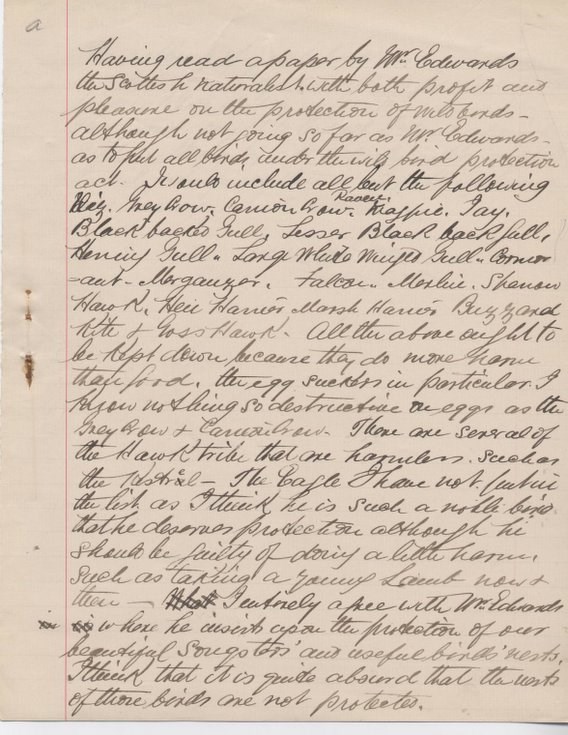 a
Having read a paper by Mr. Edwards
the Scottish naturalist. with both profit and
pleasure on the protection of wild birds -
although not going so far as Mr. Edwards -
as to put all birds under the wild bird protection
act. I would include all but the following
Viz. Grey Crow. Carrion Crow. Raven. Magpie. Jay.
Black backed Gull, Lesser Black back gull,
Herring Gull " Large White Winged Gull " Cormor
-ant - Merganzer. Falcon. Merlin. Sparrow
Hawk. Hen Harrier Marsh Harrier Buzzard
Kite & Goss Hawk. All the above ought to
be kept down because they do more harm
than good, the egg suckers in particular. I
know nothing so destructive on eggs as the
Grey Crow & Carrion Crow. There are several of
the Hawk tribe that are harmless. such as
the Kestrel - The Eagle I have not put in
the list as I think he is such a noble bird
that he deserves protection although he
should be guilty of doing a little harm.
Such as taking a young Lamb now &
then - I entirely agree with Mr. Edwards
in where he insists upon the protection of our
beautiful songsters' and useful birds' nests.
I think that it is quite absurd that the nests
of those birds are not protected.